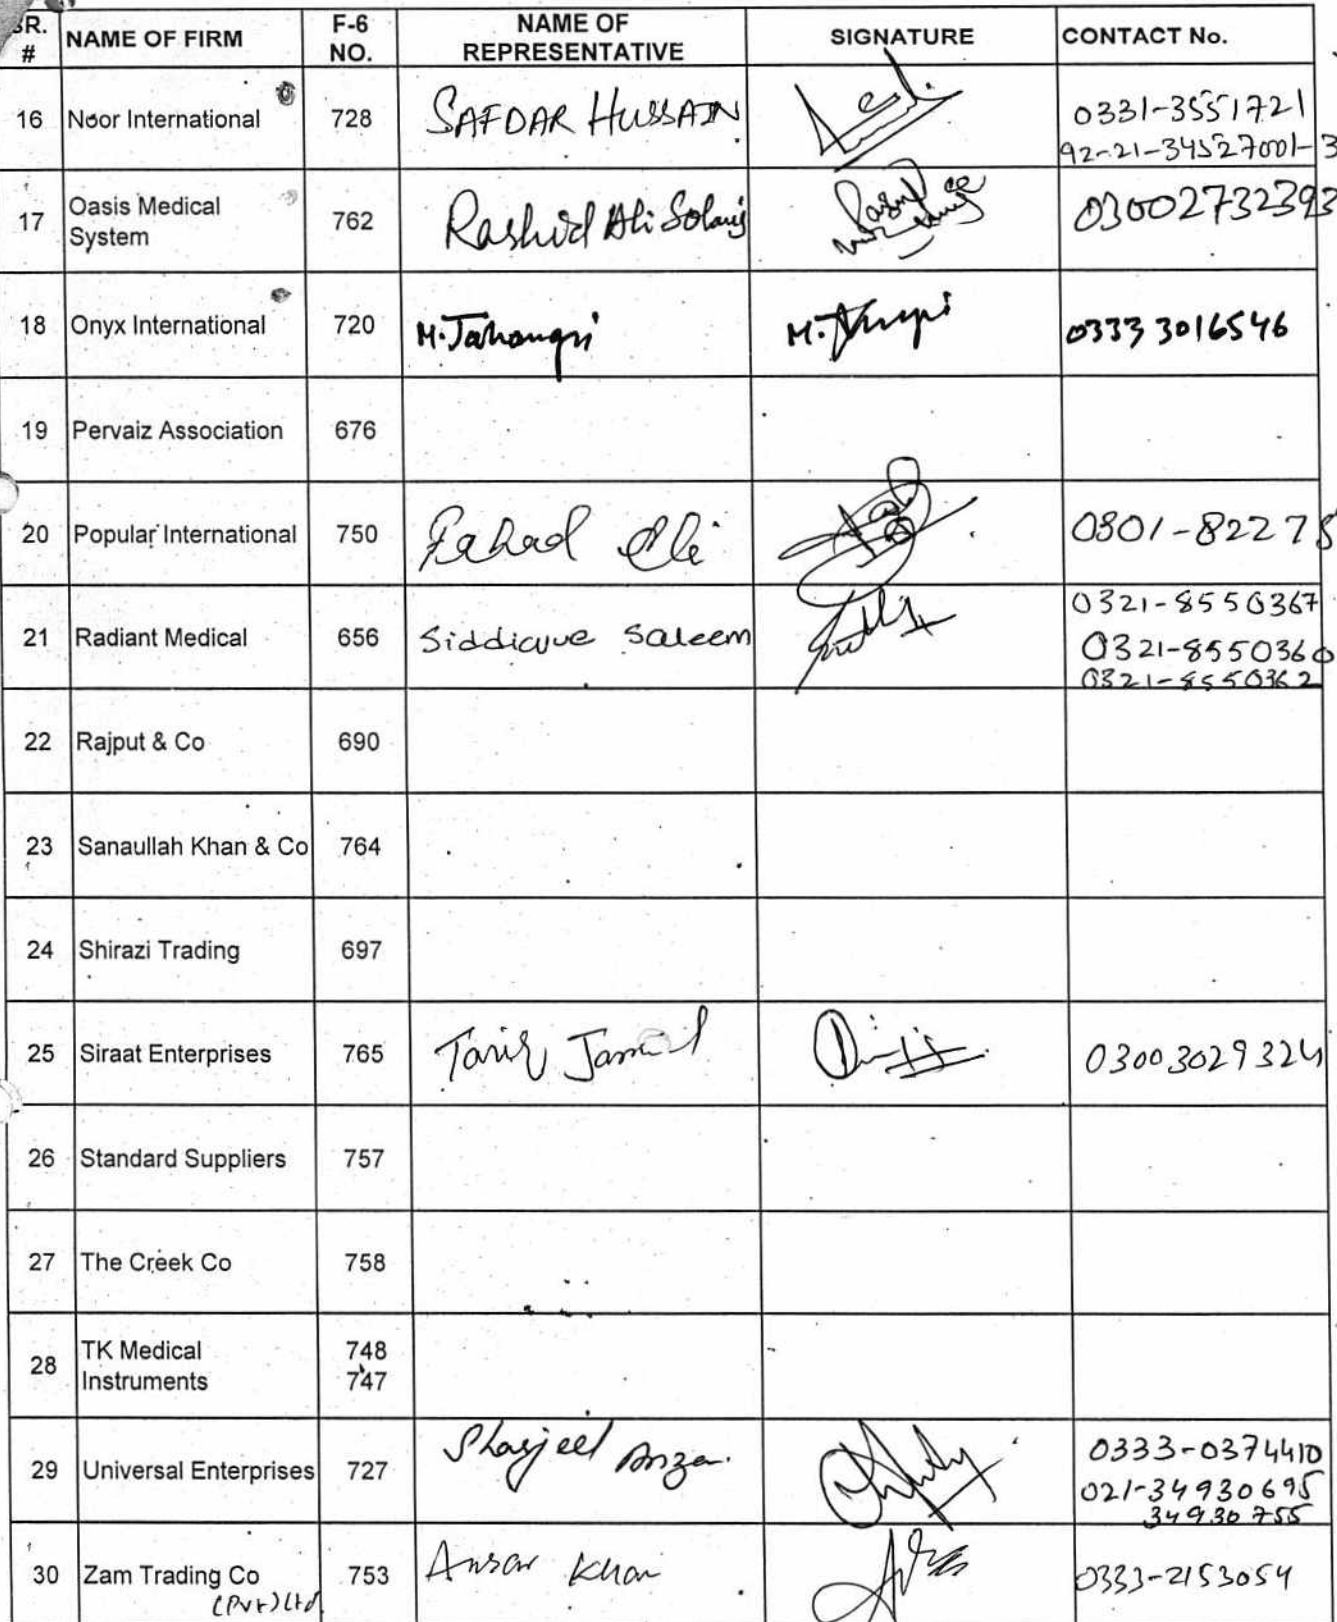 SR. # NAME OF FIRM F-6 NO. NAME OF REPRESENTATIVE SIGNATURE CONTACT No.
16 Noor International 728 SAFDAR HUSSAIN 0331-3551721
92-21-34527001-3
17 Oasis Medical System 762 Rashid Ali Solangi 03002732393
18 Onyx International 720 M. Jahangri M. 0333 3016546
19 Pervaiz Association 676
20 Popular International 750 Fahad Ali 0301-82278
21 Radiant Medical 656 Siddique Saleem 0321-8550367
0321-8550360
0321-8550362
22 Rajput & Co 690
23 Sanaullah Khan & Co 764
24 Shirazi Trading 697
25 Siraat Enterprises 765 Tariq Jamil 03003029324
26 Standard Suppliers 757
27 The Creek Co 758
28 TK Medical Instruments 748
747
29 Universal Enterprises 727 Sharjeel 0333-0374410
021-34930695
34930755
30 Zam Trading Co 753 Ansar Khan 0333-2153054
(Pvt) Ltd